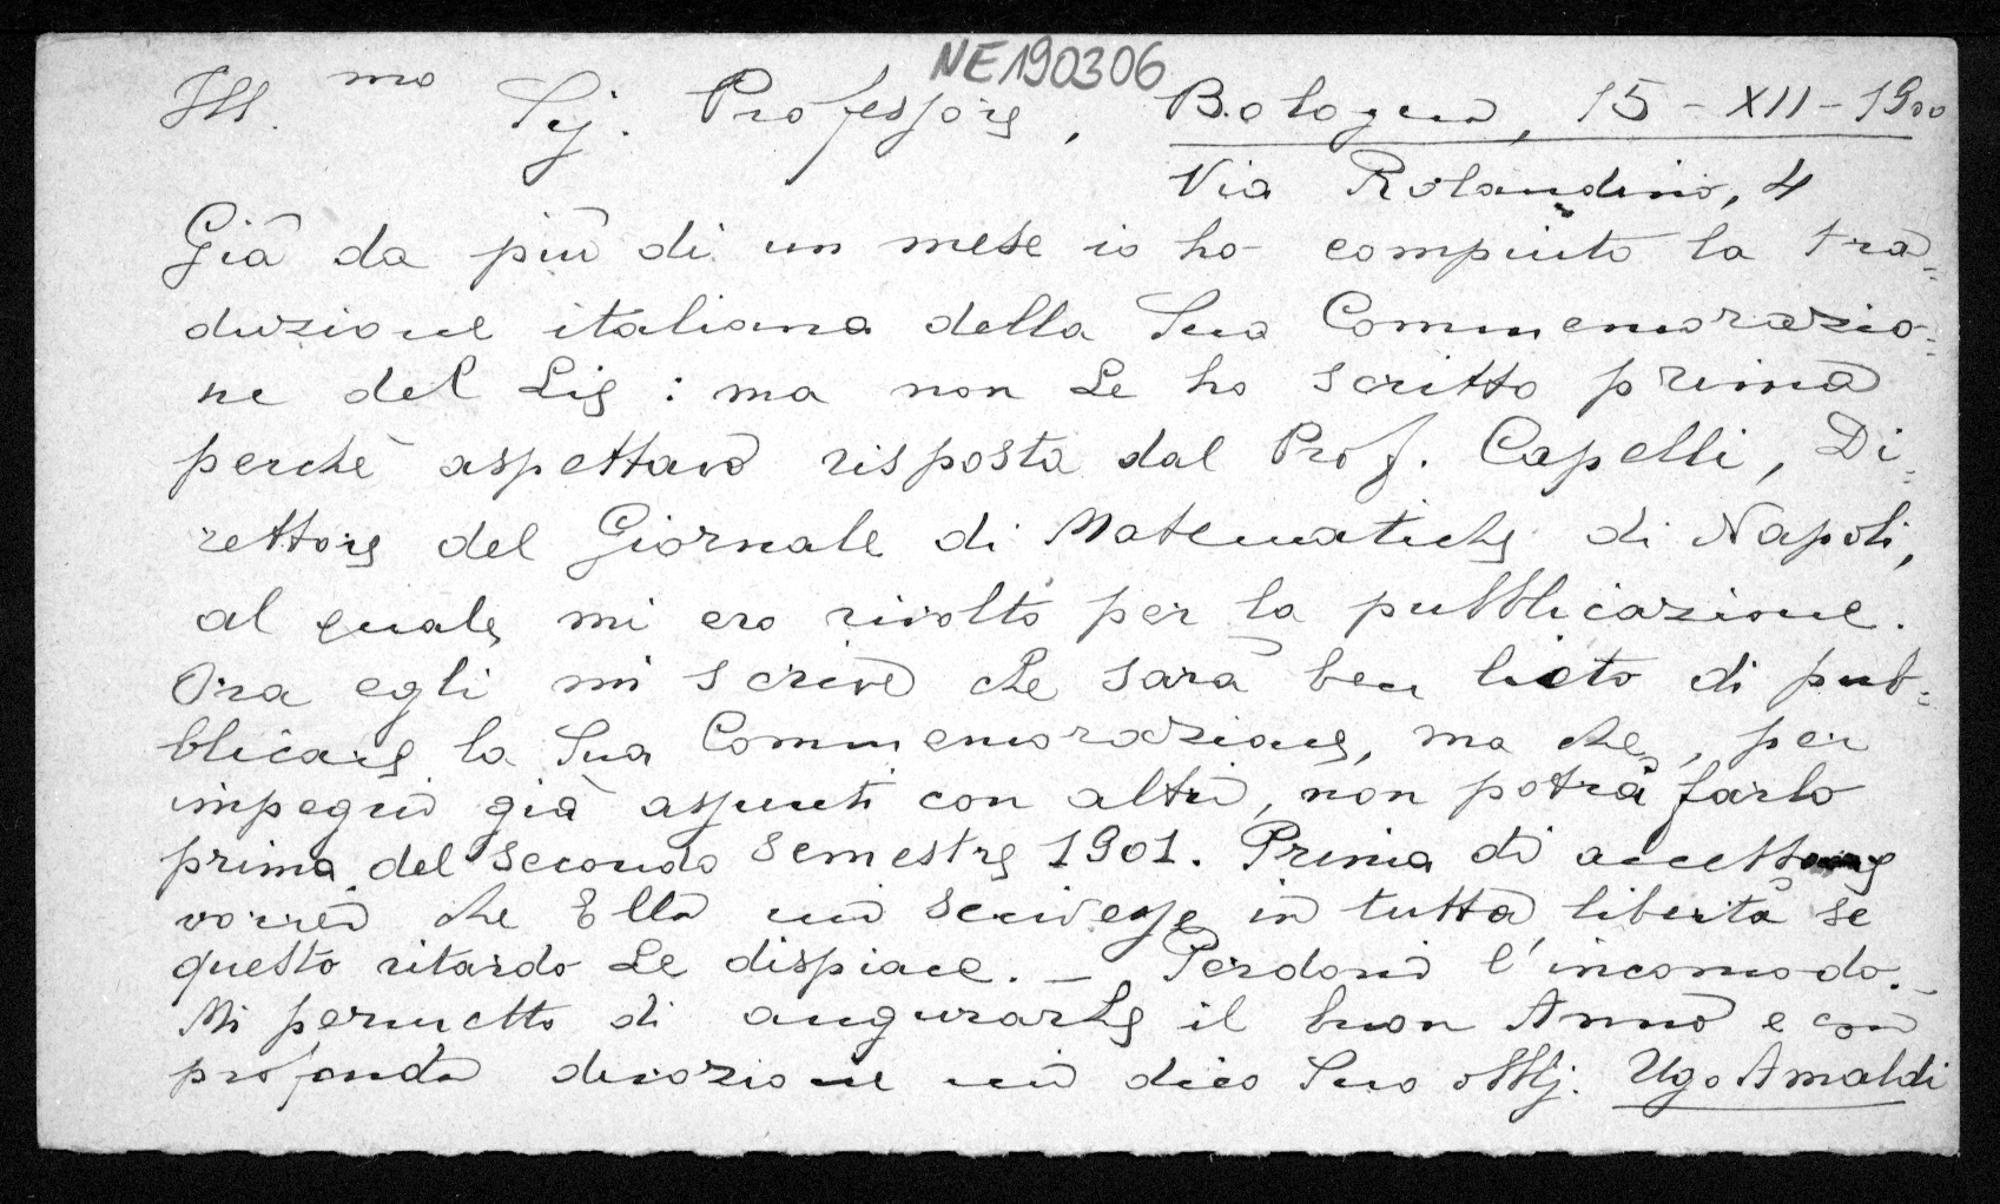 NE190306
Ill.mo Sig. Professore, Bologna, 15-XII-1900
Via Rolandino, 4
Già da più di un mese io ho compiuto la tra=
duzione italiana della Sua Commemorazio=
ne del Lie: ma non Le ho scritto prima
perchè aspettavo risposta dal Prof. Capelli, Di=
rettore del Giornale di Matematiche di Napoli,
al quale mi ero rivolto per la pubblicazione.
Ora egli mi scrive che sarà ben lieto di pub=
blicare la Sua Commemorazione, ma che, per
impegni già assunti con altri, non potrà farlo
prima del secondo semestre 1901. Prima di accettare
vorrei che Ella mi scrivesse in tutta libertà se
questo ritardo Le dispiace. – Perdoni l'incomodo. –
Mi permetto di augurarLe il buon Anno e con
profonda devozione mi dico Suo obbl. Ugo Amaldi